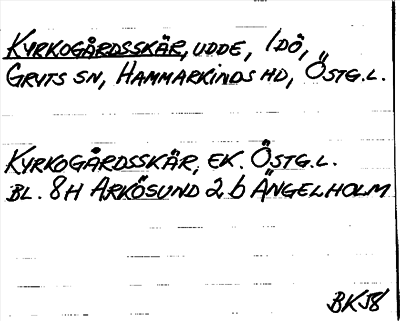 KYRKOGÅRDSSKÄR, UDDE, IDÖ,
GRYTS SN, HAMMARKINDS HD, ÖSTG.L.
KYRKOGÅRDSSKÄR, EK. ÖSTG.L.
BL. 8H ARKÖSUND 2b ÄNGELHOLM
BKJ8